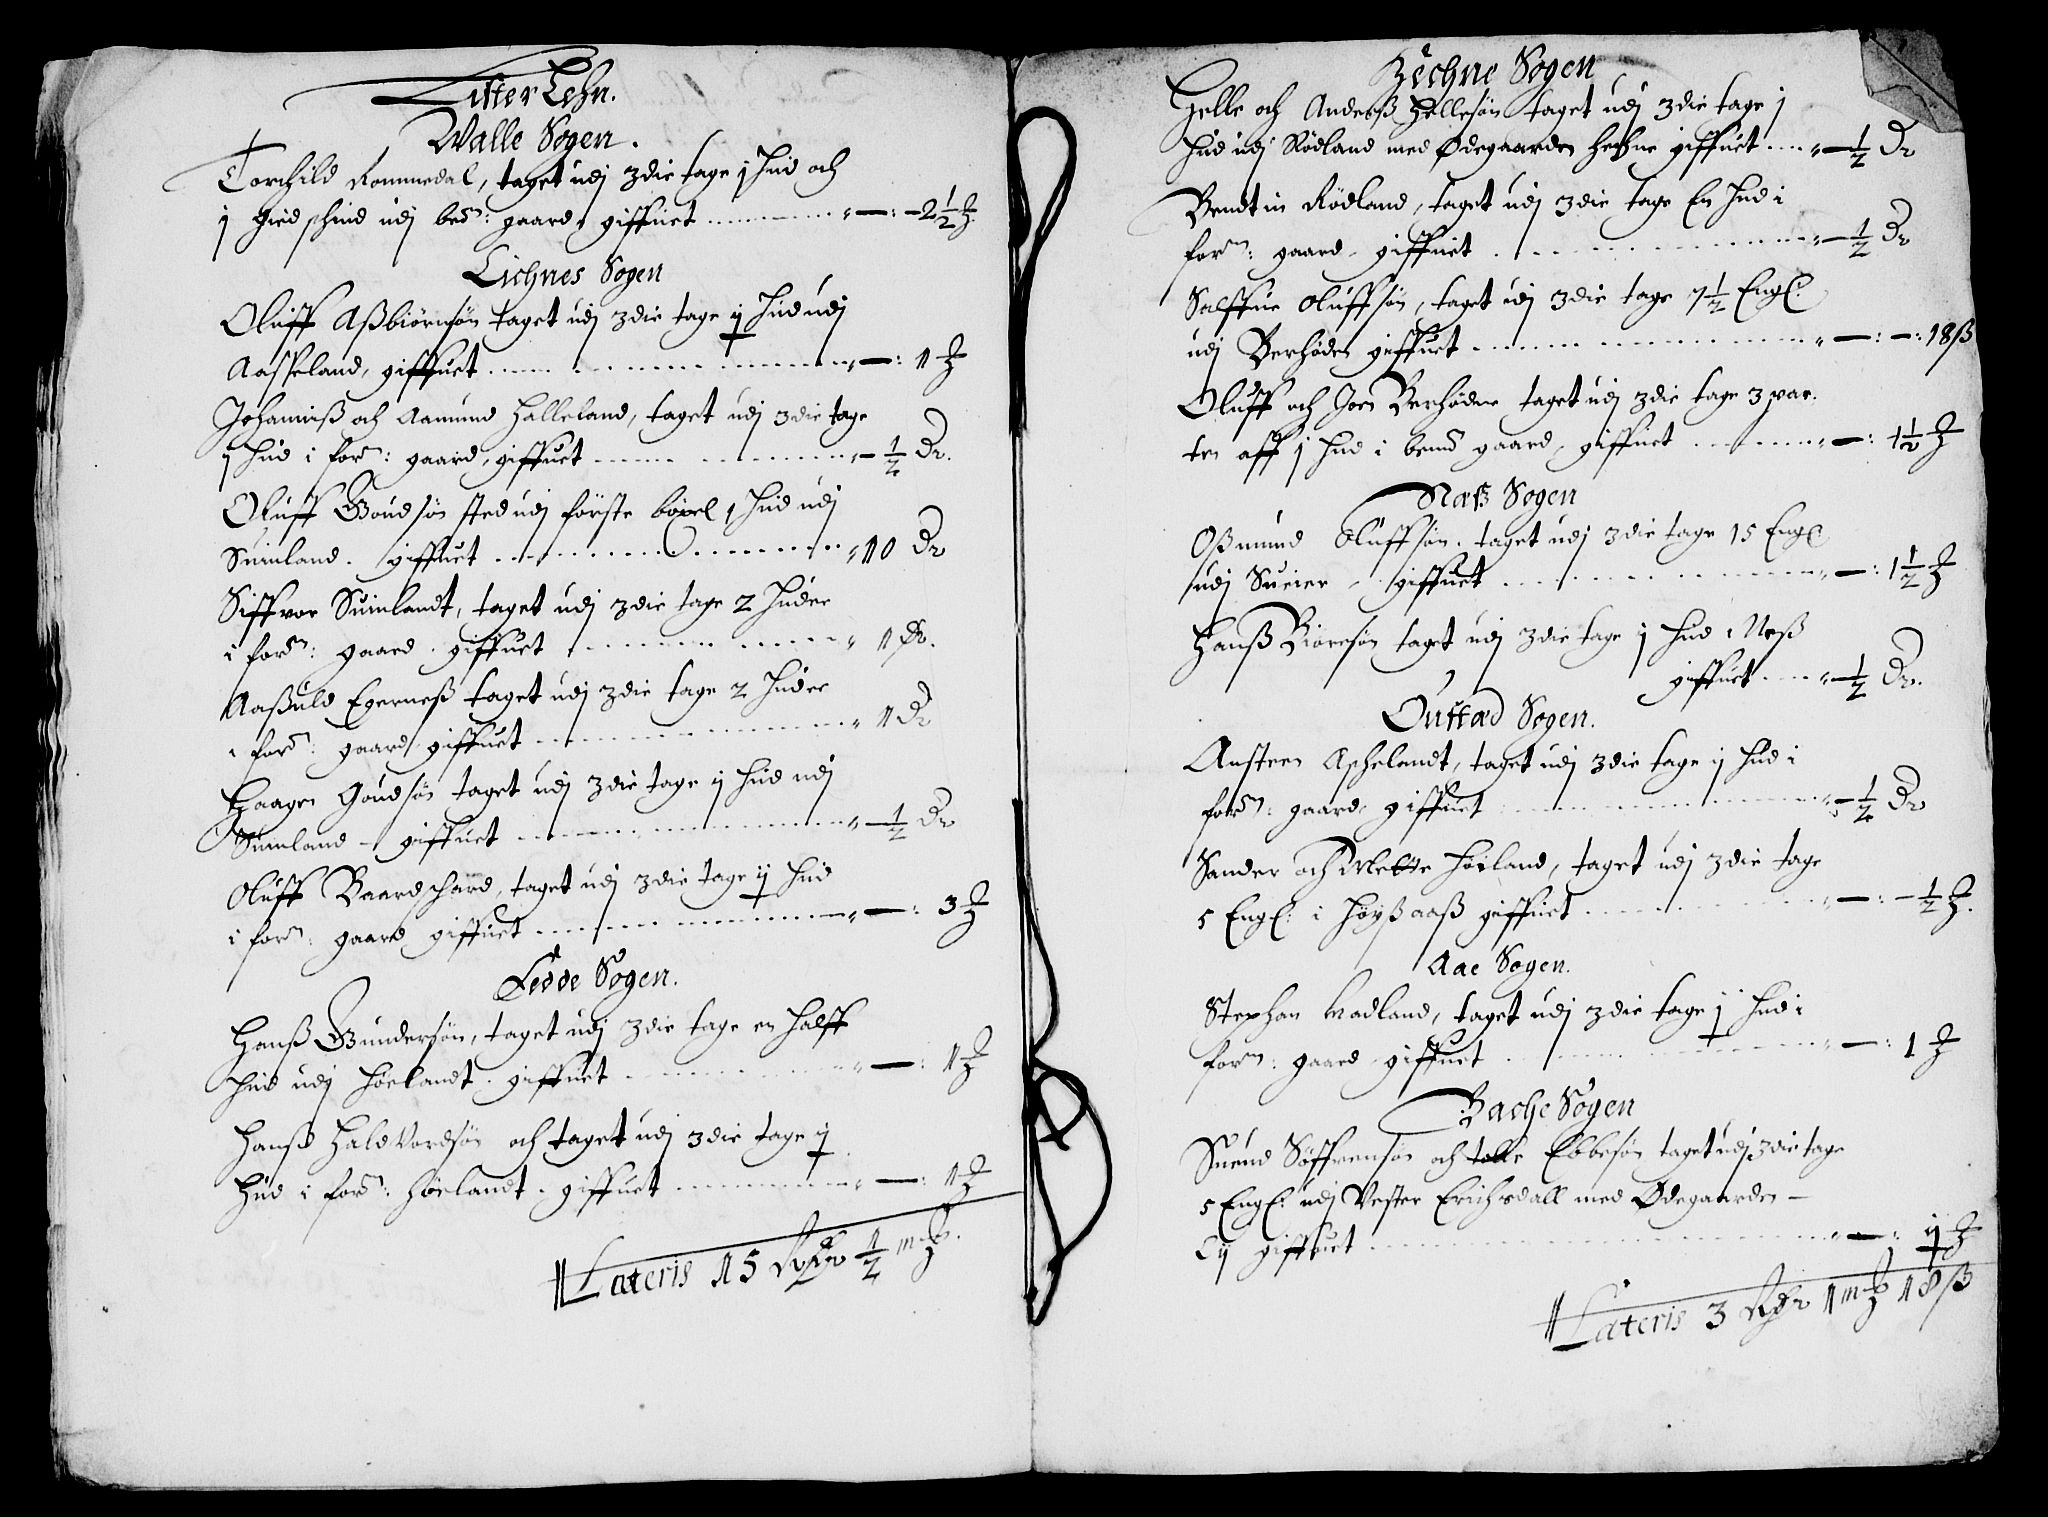 Lister Lehn.
Walle Sogen.
Torchild Rommedal, taget udj 3die tage j Hud och
j giedschind udj bem: gaard, giffuet ........ " — : — 2½ ₰
Lichnes Sogen
Oluff Aßbiörnsøn taget udj 3die tage ɉ Hud udj
Aasseland, giffuet ........ " — : 1 ₰
Johanniß och Aamund Halleland, taget udj 3die tage
j Hud i forn: gaard, giffuet ........ " — ½ Dr.
Oluff Goudsøn sted udj förste böxel 1 Hud udj
Suinland. giffuet ........ " 10 Dr
Siffvor Suinlandt, taget udj 3die tage 2 Huder
i forn: gaard. giffuet ........ " 1 Dr.
Aaßuld Egerneß taget udj 3die tage 2 Huder
i forn: gaard giffuet ........ " 1 Dr
Haagen Goudsøn taget udj 3die tage j Hud udj
Suinland - giffuet ........ " — ½ Dr
Oluff Baardschard, taget udj 3die tage ɉ Hud
i forn: gaard giffuet ........ " — : 3 ₰
Fedde Sogen.
Hanß Gundersøn, taget udj 3die tage en halff
Hud udj Höelandt. giffuet ........ " — : 1 ₰
Hanß Haldvordsøn och taget udj 3die tage ɉ
Hud i forn: Höelandt. giffuet ........ " — : 1 ₰
Lateris 15 Rdr ½ m₰.
Hechne Sogen
Helle och Anderß Hellesøn taget udj 3die tage j
Hud udj Rödland med Ødegaarden Hechne giffuet .... " — ½ Dr
Bendt in Rödland, taget udj 3die tage En Hud i
forn: gaard - giffuet ........ " — ½ Dr
Salffue Oluffsøn, taget udj 3die tage 7½ Engl:
udj Berhöden giffuet ........ " — : — : 18 ß
Oluff och Joen Berhöden taget udj 3die tage 3 par-
ten aff j Hud i bemt gaard, giffuet ........ " — : 1½ ₰
Næß Sogen
Oßmund Oluffsøn. taget udj 3die tage 15 Engl:
udj Sueier - giffuet ........ " — : 1½ ₰
Hanß Biörnsøn taget udj 3die tage j Hud i Neß
giffuet .... " — ½ Dr.
Oustad Sogen.
Austeen Aschelandt, taget udj 3die tage j Hud i
forn: gaard, giffuet ........ " — ½ Dr
Sander och Mette Höiland, taget udj 3die tage
5 Engl: i Höyßaaß giffuet ........ " — : — ½ ₰.
Aae Sogen.
Stephan Aadland, taget udj 3die tage ɉ Hud i
forn: gaard - giffuet ........ " — : 1 ₰
Bache Sogen
Suend Söffrensøn och Tolle Ebbesøn taget udj 3die tage
5 Engl: udj Vester Erichsdall med Ødegaarden —
Ly giffuet ........ " — : ɉ ₰
Lateris 3 Rdr 1 m₰ 18 ß